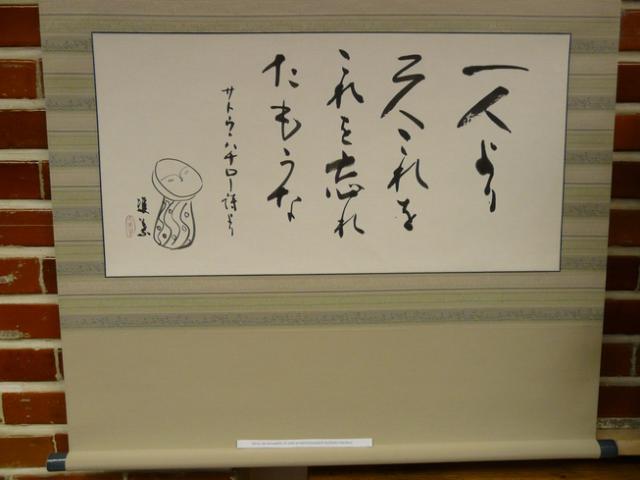 一人より
二人これを
これを忘れ
たもうな
サトウ・ハチロー詩より